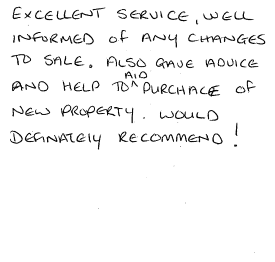 EXCELLENT SERVICE, WELL
INFORMED OF ANY CHANGES
TO SALE. ALSO GAVE ADVICE
AND HELP TO ^AID PURCHACE OF
NEW PROPERTY. WOULD
DEFINATELY RECOMMEND!